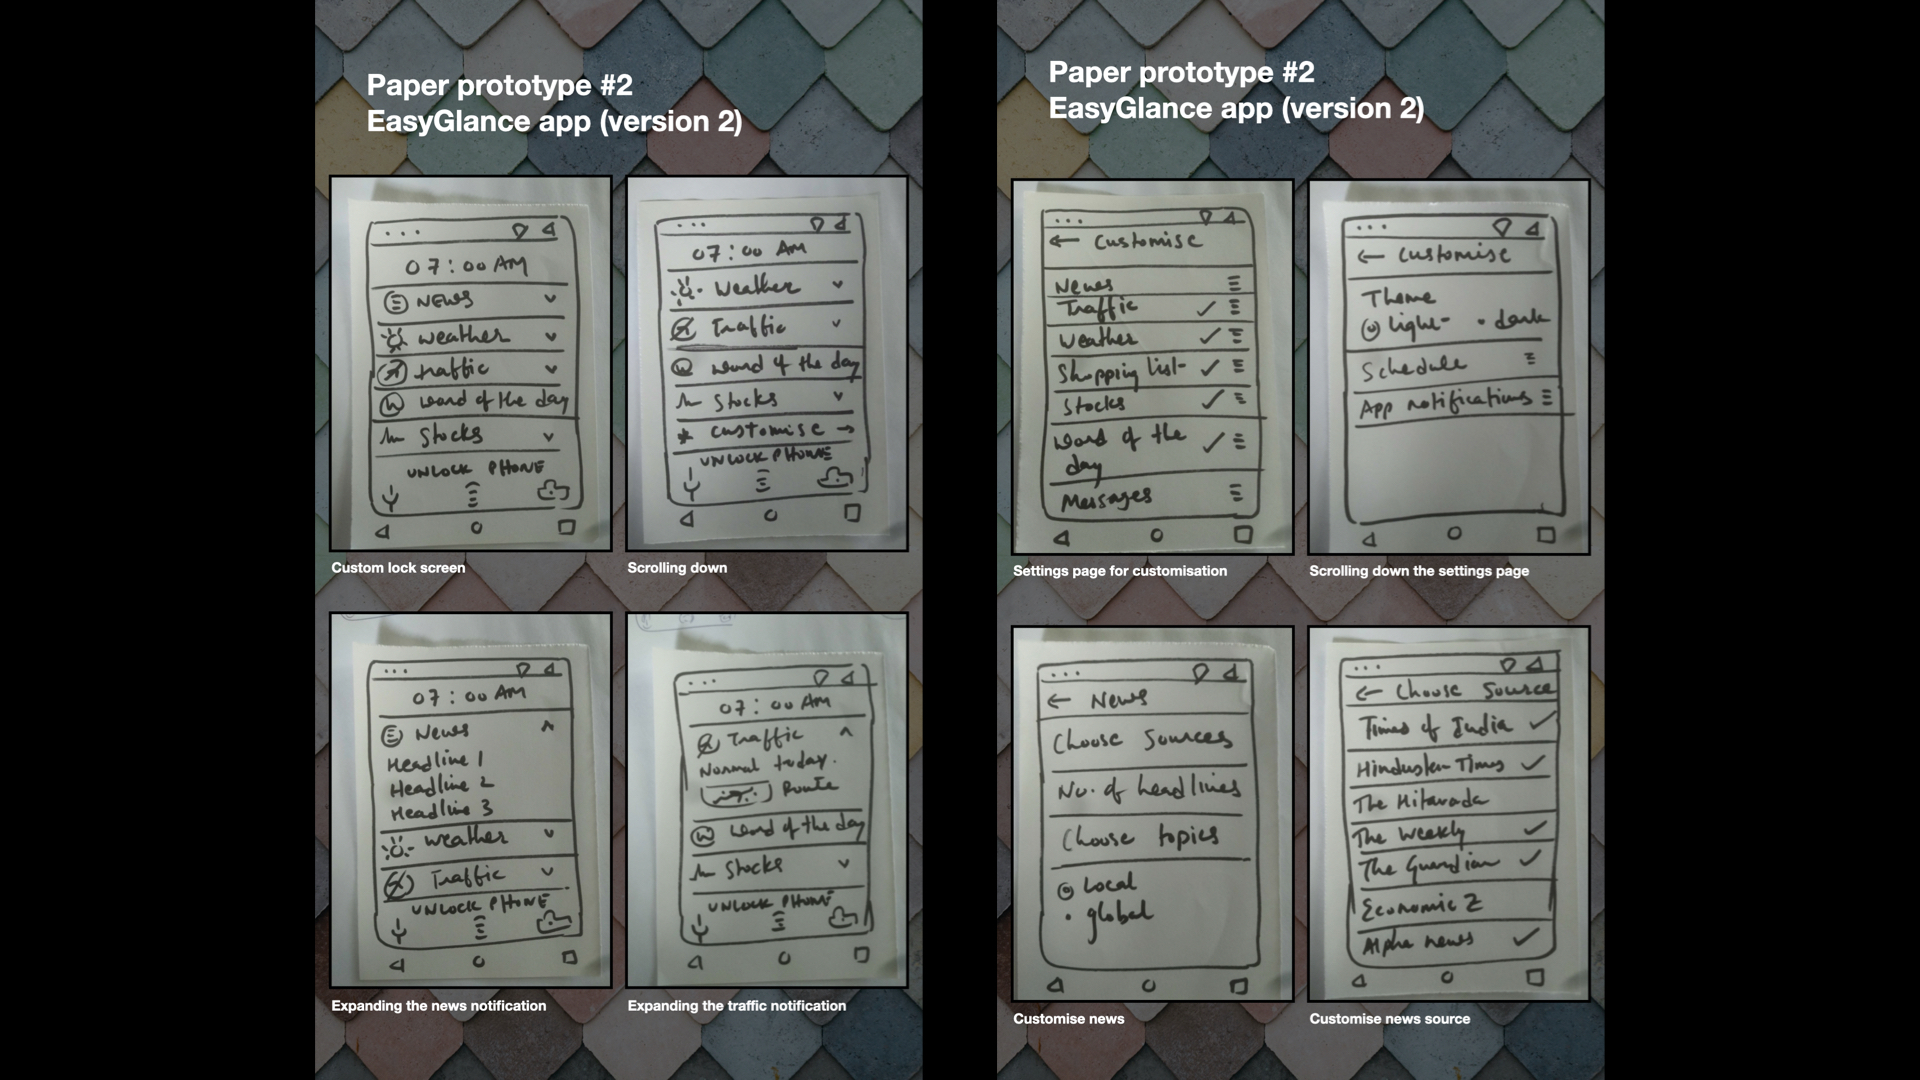 Paper prototype #2
EasyGlance app (version 2)
07:00 AM
NEWS
weather
traffic
word of the day
Stocks
UNLOCK PHONE
Custom lock screen
07:00 AM
Weather
Traffic
word of the day
Stocks
customise
UNLOCK PHONE
Scrolling down
07:00 AM
News
Headline 1
Headline 2
Headline 3
weather
Traffic
UNLOCK PHONE
Expanding the news notification
07:00 AM
Traffic
Normal today.
Route
word of the day
Stocks
UNLOCK PHONE
Expanding the traffic notification
Paper prototype #2
EasyGlance app (version 2)
← Customise
News
Traffic
Weather
Shopping list
Stocks
Word of the
day
Messages
Settings page for customisation
← Customise
Theme
light dark
Schedule
App notifications
Scrolling down the settings page
← News
Choose Sources
No. of headlines
Choose topics
Local
global
Customise news
← Choose Source
Times of India
Hindustan Times
The Hitavada
The Weekly
The Guardian
Economic Z
Alpha news
Customise news source